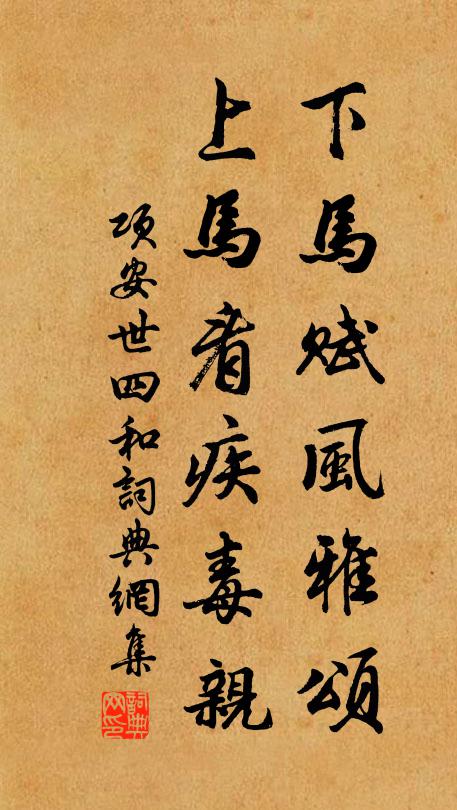 下馬賦風雅頌
上馬看疾毒親
項安世四和詞典網集
詞典网印